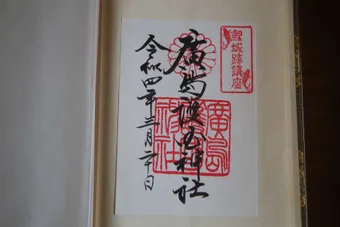 鯉城跡鎮座
廣島護国神社
令和四年三月二十日
廣島護國神社